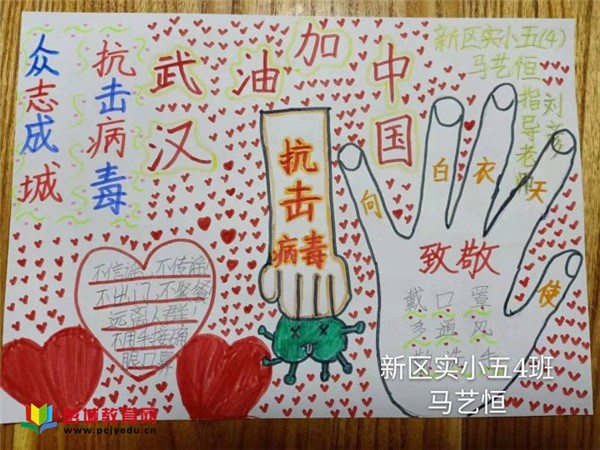 众志成城
抗击病毒
武汉
加油
中国
新区实小五(4)
马艺恒
指导老师
刘
抗击
病毒
向白衣天使
致敬
戴口罩
多通风
不信谣,不传谣
不出门,不聚餐
远离人群!
不用手接确
眼口鼻
新区实小五4班
马艺恒
教育网
www.pcjyedu.cn